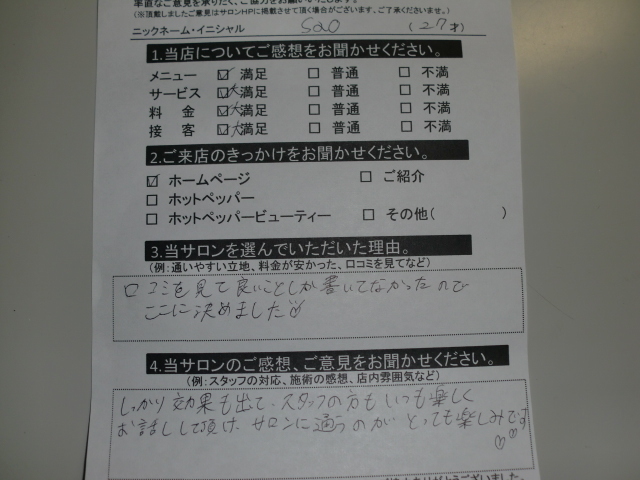 率直なご意見を承りたく、ご協力をお願いいたします。
(※頂戴しましたご意見はサロンHPに掲載させて頂く場合がございます、ご了承くださいませ。)
ニックネーム・イニシャル sao (27才)
1.当店についてご感想をお聞かせください。
メニュー ☑ 満足 □ 普通 □ 不満
サービス ☑大満足 □ 普通 □ 不満
料 金 ☑大満足 □ 普通 □ 不満
接 客 ☑大満足 □ 普通 □ 不満
2.ご来店のきっかけをお聞かせください。
☑ ホームページ □ ご紹介
□ ホットペッパー
□ ホットペッパービューティー □ その他( )
3.当サロンを選んでいただいた理由。
(例:通いやすい立地、料金が安かった、口コミを見てなど)
口コミを見て良いことしか書いてなかったので
ここに決めました♡
4.当サロンのご感想、ご意見をお聞かせください。
(例:スタッフの対応、施術の感想、店内雰囲気など)
しっかり効果も出て、スタッフの方もいつも楽しく
お話しして頂け、サロンに通うのがとっても楽しみです
♡♡